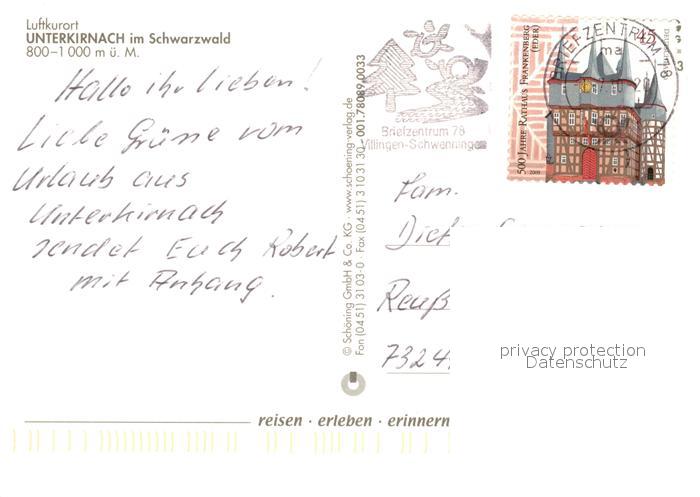 Luftkurort
UNTERKIRNACH im Schwarzwald
800–1000 m ü. M.
Hallo ihr Lieben!
Liebe Grüsse vom
Urlaub aus
Unterkirnach
sendet Euch Robert
mit Anhang.
© Schöning GmbH & Co. KG · www.schoening-verlag.de
Fon (04 51) 31 03-0 · Fax (04 51) 3 10 31 30 · 001.78089.0033
Briefzentrum 78
Villingen-Schwenningen
BRIEFZENTRUM
78
500 JAHRE RATHAUS FRANKENBERG
(EDER)
45
2009
Fam.
Diet
Reuß
7324
privacy protection
Datenschutz
reisen · erleben · erinnern